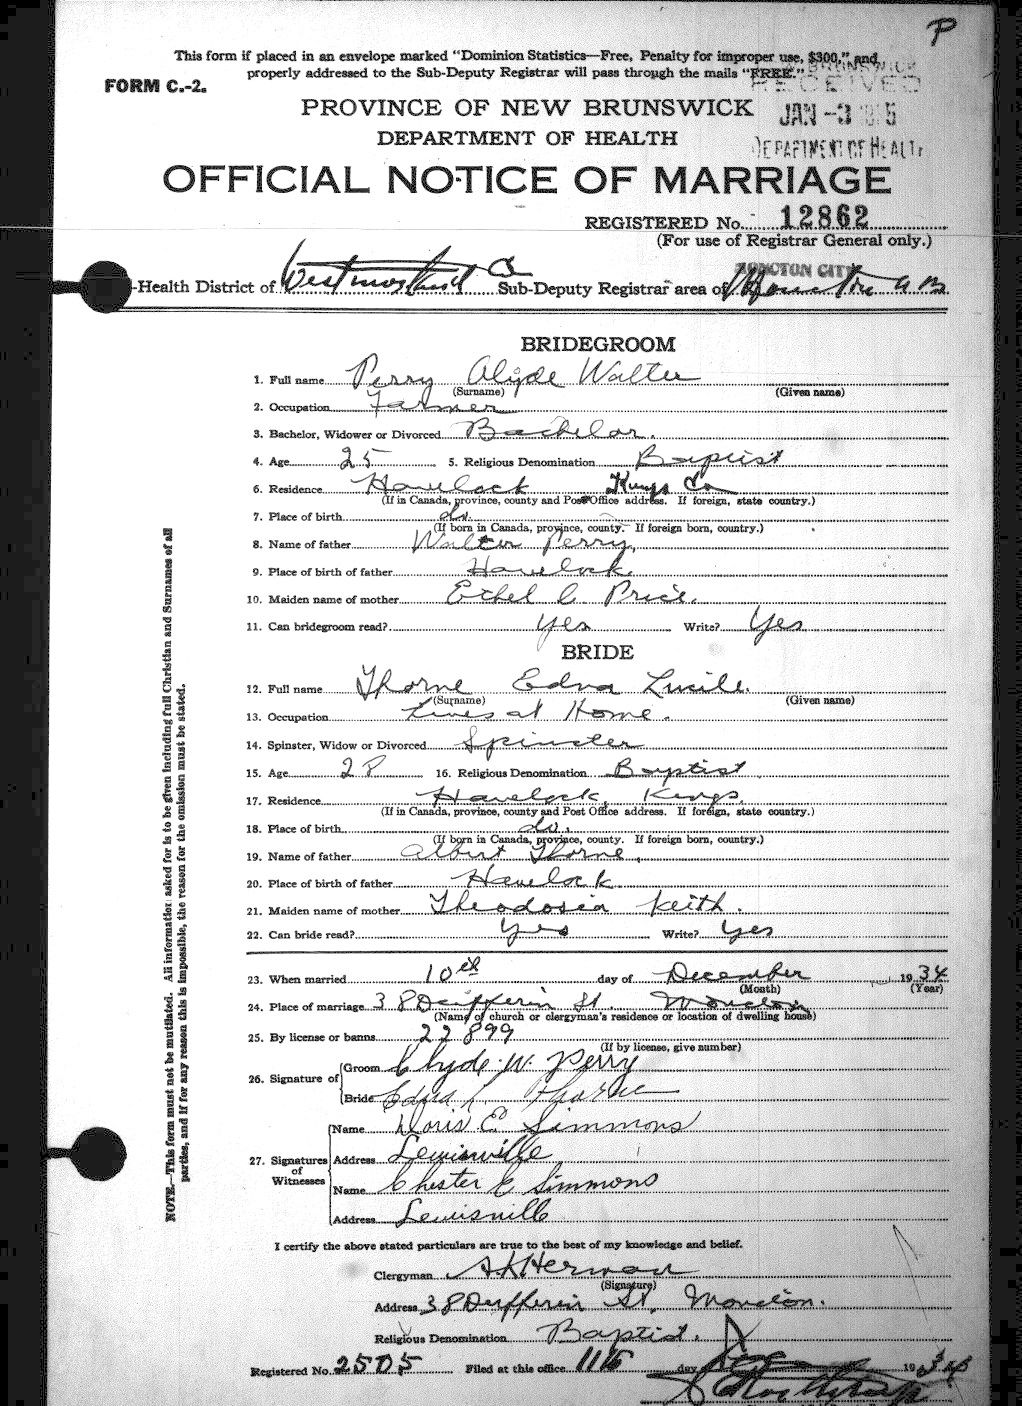 P
This form if placed in an envelope marked "Dominion Statistics—Free, Penalty for improper use, $300," and
properly addressed to the Sub-Deputy Registrar will pass through the mails "FREE."
FORM C.-2.
RECEIVED
JAN -3
DEPARTMENT OF HEALTH
PROVINCE OF NEW BRUNSWICK
DEPARTMENT OF HEALTH
OFFICIAL NOTICE OF MARRIAGE
REGISTERED No. 12862
(For use of Registrar General only.)
MONCTON CITY
-Health District of Westmorland Co Sub-Deputy Registrar area of Moncton N B
BRIDEGROOM
1. Full name Perry Clyde Walter
(Surname) (Given name)
2. Occupation Farmer
3. Bachelor, Widower or Divorced Bachelor.
4. Age 25 5. Religious Denomination Baptist
6. Residence Havelock Kings Co
(If in Canada, province, county and Post Office address. If foreign, state country.)
7. Place of birth do.
(If born in Canada, province, county. If foreign born, country.)
8. Name of father Walter Perry,
9. Place of birth of father Havelock
10. Maiden name of mother Ethel C. Price.
11. Can bridegroom read? yes Write? Yes
BRIDE
12. Full name Thorne Edna Lucile.
(Surname) (Given name)
13. Occupation Lives at Home.
14. Spinster, Widow or Divorced Spinster
15. Age 28 16. Religious Denomination Baptist
17. Residence Havelock, Kings
(If in Canada, province, county and Post Office address. If foreign, state country.)
18. Place of birth do.
(If born in Canada, province, county. If foreign born, country.)
19. Name of father Albert Thorne,
20. Place of birth of father Havelock
21. Maiden name of mother Theodosia Keith.
22. Can bride read? Yes Write? Yes
23. When married 10th day of December 1934
(Month) (Year)
24. Place of marriage 38 Dufferin St. Moncton
(Name of church or clergyman's residence or location of dwelling house)
25. By license or banns 22899
(If by license, give number)
26. Signature of
Groom Clyde W. Perry
Bride Edna L. Thorne
27. Signatures of Witnesses
Name Doris E Simmons
Address Lewisville
Name Chester E Simmons
Address Lewisville
I certify the above stated particulars are true to the best of my knowledge and belief.
Clergyman A K Herman
(Signature)
Address 38 Dufferin St, Moncton.
Religious Denomination Baptist.
Registered No. 2505 Filed at this office 11th day 193
NOTE.—This form must not be mutilated. All information asked for is to be given including full Christian and Surnames of all
parties, and if for any reason this is impossible, the reason for the omission must be stated.